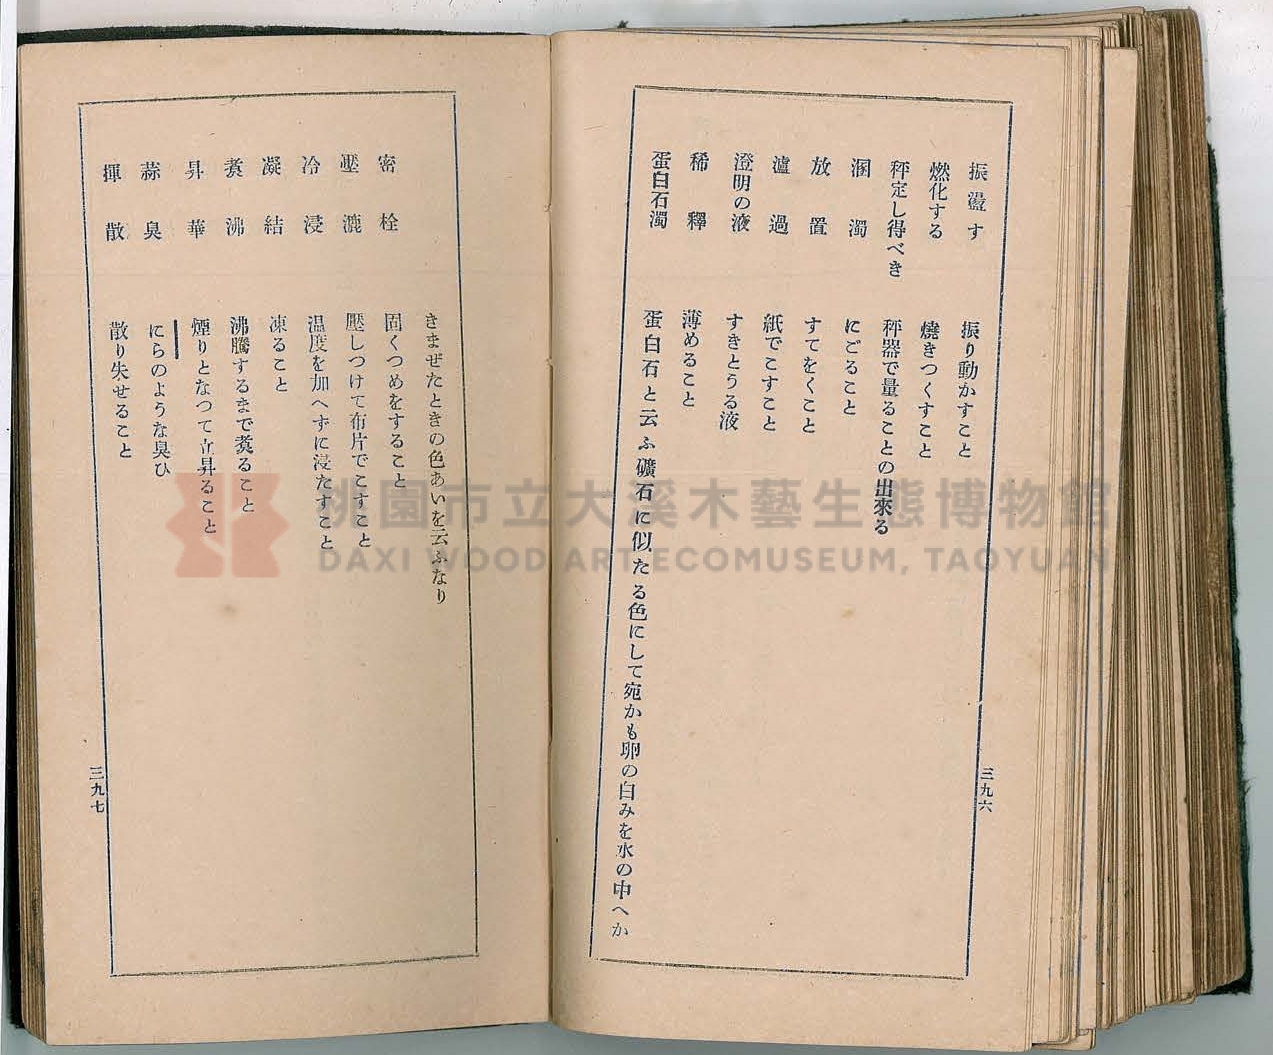 振盪す　振り動かすこと
燃化する　燒きつくすこと
秤定し得べき　秤器で量ることの出來る
溷濁　にごること
放置　すてをくこと
瀘過　紙でこすこと
澄明の液　すきとうる液
稀釋　薄めること
蛋白石濁　蛋白石と云ふ礦石に似たる色にして宛かも卵の白みを水の中へか
三九六
きまぜたときの色あいを云ふなり
密栓　固くつめをすること
壓漉　壓しつけて布片でこすこと
冷浸　温度を加へずに浸たすこと
凝結　凍ること
煑沸　沸騰するまで煑ること
昇華　煙りとなつて立昇ること
蒜臭　にらのような臭ひ
揮散　散り失せること
三九七
桃園市立大溪木藝生態博物館
DAXI WOOD ART ECOMUSEUM, TAOYUAN